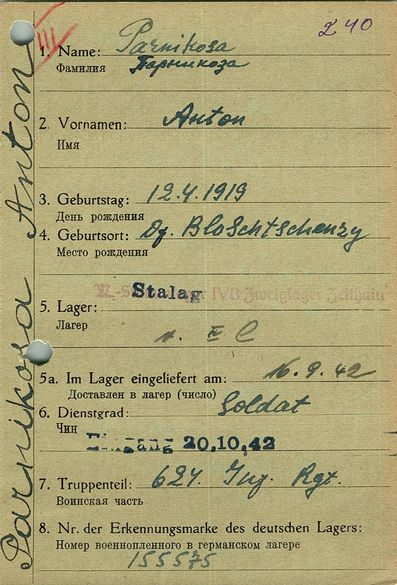 III
240
1. Name: Parnikosa
Фамилия Парникоза
2. Vornamen: Anton
Имя
3. Geburtstag: 12.4.1919
День рождения
4. Geburtsort: Dg. Bloschtschenzy
Место рождения
Stalag IVB Zweiglager Zeithain
5. Lager:
Лагерь
5a. Im Lager eingeliefert am: 16.9.42
Доставлен в лагерь (число)
6. Dienstgrad: Soldat
Чин
Eingang 20.10.42
7. Truppenteil: 624. Inf. Rgt.
Воинская часть
8. Nr. der Erkennungsmarke des deutschen Lagers:
Номер военнопленного в германском лагере
155575
Parnikosa Anton